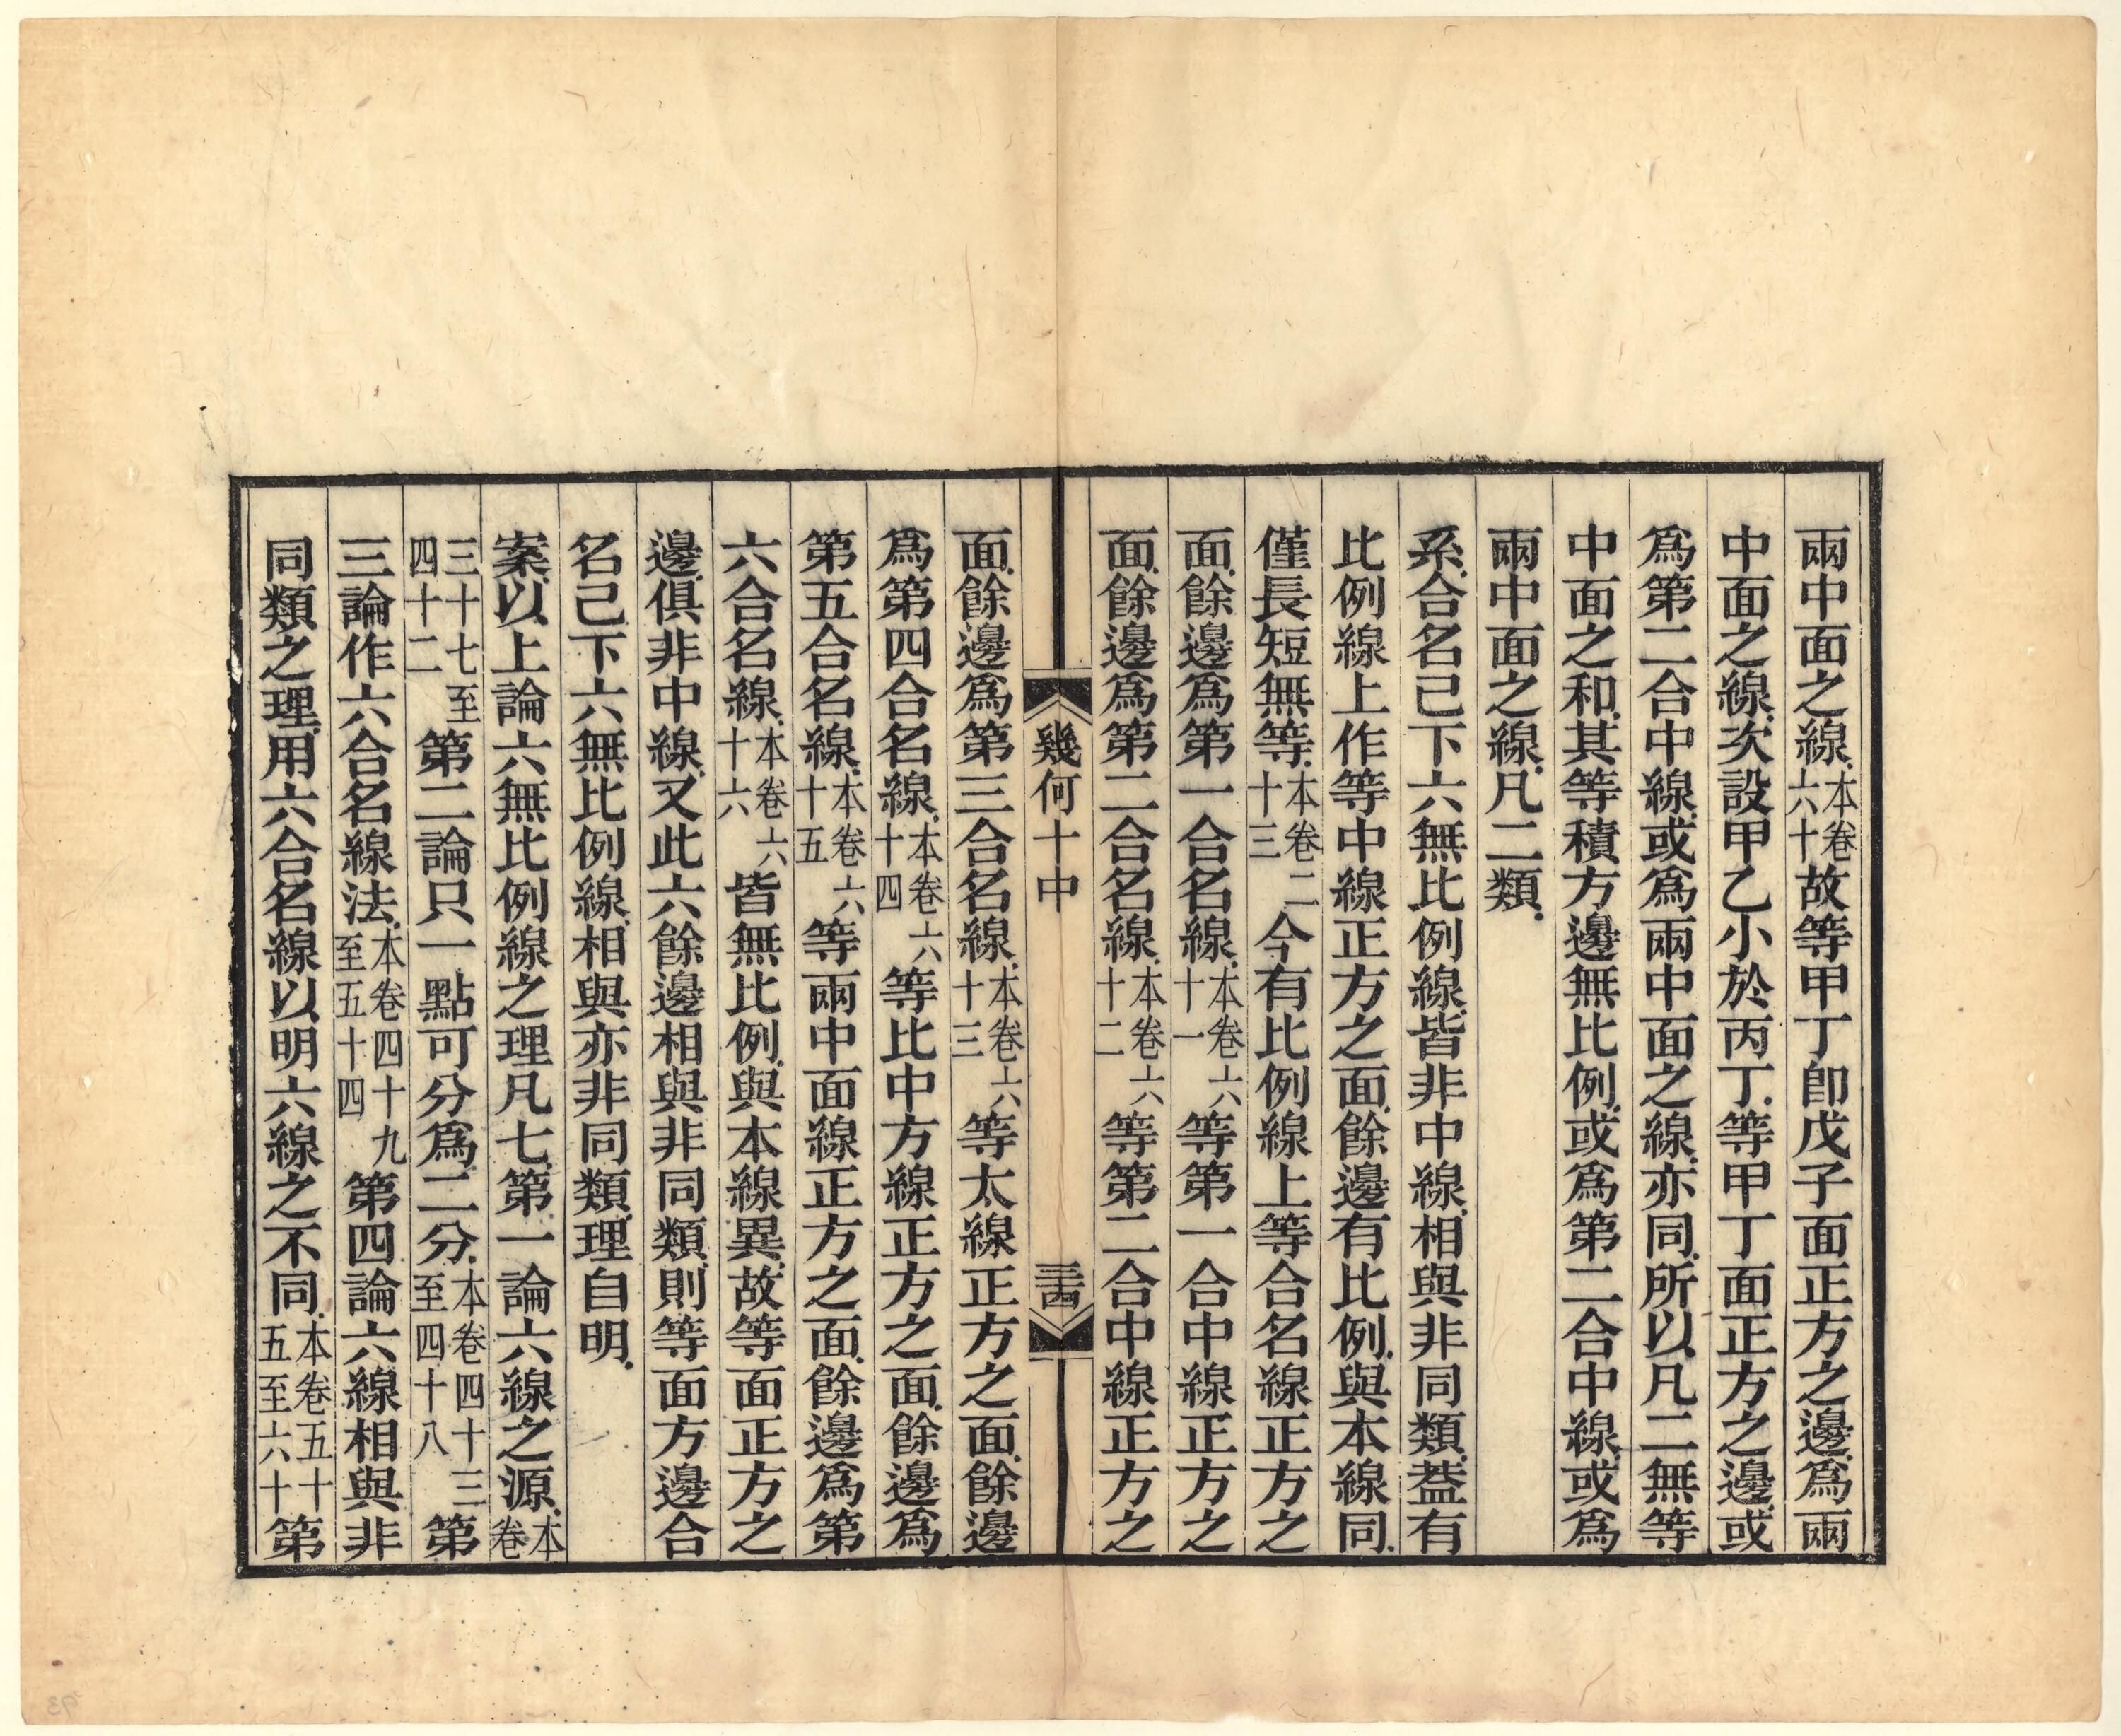 兩中面之線.本卷六十故等甲丁卽戊子面正方之邊.爲兩
中面之線.次設甲乙小於丙丁.等甲丁面正方之邊.或
爲第二合中線.或爲兩中面之線.亦同.所以凡二無等
中面之和.其等積方邊無比例.或爲第二合中線.或爲
兩中面之線.凡二類.
系.合名己下六無比例線.皆非中線.相與非同類.葢有
比例線上作等中線正方之面.餘邊有比例.與本線同.
僅長短無等.本卷二十三今有比例線上等合名線正方之
面.餘邊爲第一合名線.本卷六十一等第一合中線正方之
面.餘邊爲第二合名線.本卷六十二等第二合中線正方之
幾何十中
三十四
面.餘邊爲第三合名線.本卷六十三等太線正方之面.餘邊
爲第四合名線.本卷六十四等比中方線正方之面.餘邊爲
第五合名線.本卷六十五等兩中面線正方之面.餘邊爲第
六合名線.本卷六十六皆無比例.與本線異.故等面正方之
邊.俱非中線.又此六餘邊相與非同類.則等面方邊合
名己下六無比例線.相與亦非同類.理自明.
案.以上論六無比例線之理凡七.第一論六線之源.本卷
三十七至四十二第二論只一點可分爲二分.本卷四十三至四十八第
三論作六合名線法.本卷四十九至五十四第四論六線相與非
同類之理.用六合名線以明六線之不同.本卷五十五至六十第